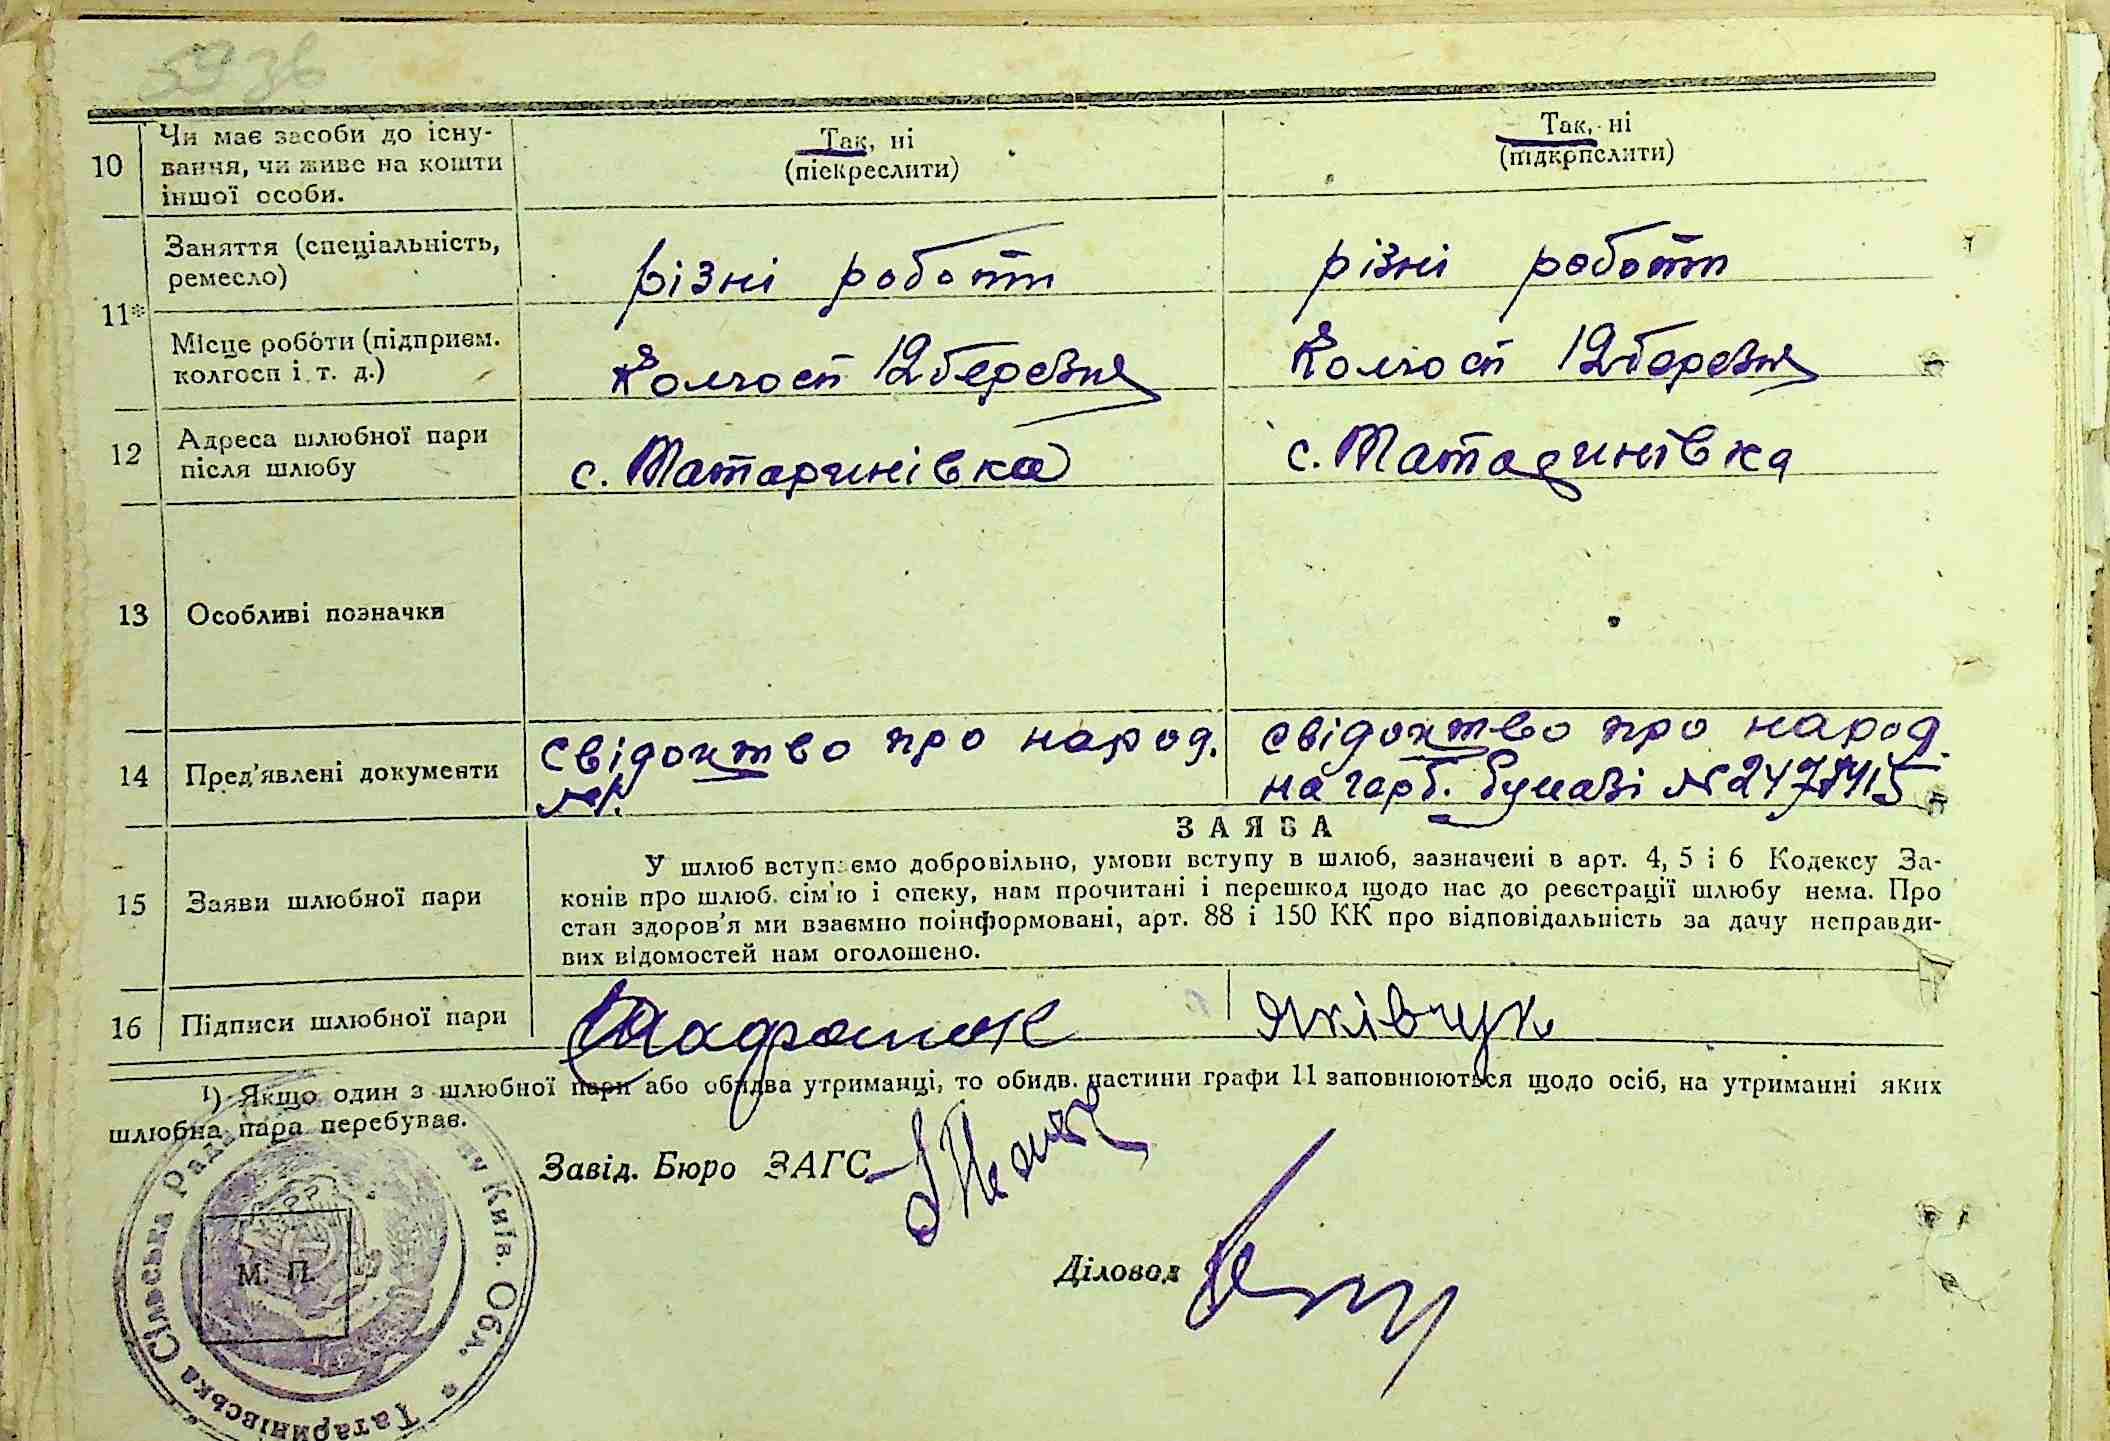 5936
10 Чи має засоби до існу-
вання, чи живе на кошти
іншої особи.
Так, ні
(піекреслити)
Так, ні
(підкрпслити)
11*
Заняття (спеціальність,
ремесло)
різні роботи
різні роботи
Місце роботи (підприєм.
колгосп і т. д.)
Колгосп 12 березня
Колгосп 12 березня
12 Адреса шлюбної пари
після шлюбу
с. Татаринівка
с. Татаринівка
13 Особливі позначки
14 Пред'явлені документи
свідоцтво про народ.
свідоцтво про народ.
на герб. бумазі №
15 Заяви шлюбної пари
ЗАЯВА
У шлюб вступаємо добровільно, умови вступу в шлюб, зазначені в арт. 4, 5 і 6 Кодексу За-
конів про шлюб. сім'ю і опеку, нам прочитані і перешкод щодо нас до реєстрації шлюбу нема. Про
стан здоров'я ми взаємно поінформовані, арт. 88 і 150 КК про відповідальність за дачу неправди-
вих відомостей нам оголошено.
16 Підписи шлюбної пари
Яківчук
¹) Якщо один з шлюбної пари або обидва утриманці, то обидв. частини графи 11 заповнюються щодо осіб, на утриманні яких
шлюбна пара перебуває.
Завід. Бюро ЗАГС
Діловод
М. П.
Татаринівська Сільська Рада Київ. Обл.